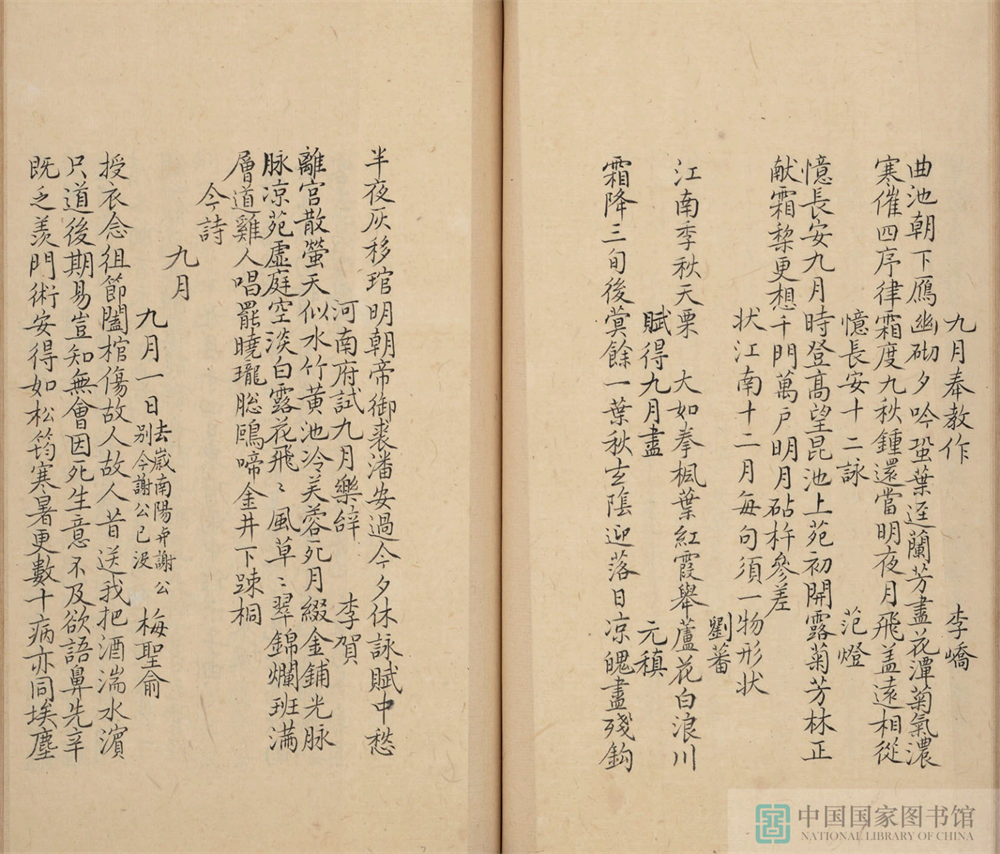 九月奉教作　李嶠
曲池朝下鴈幽砌夕吟蛩葉逕蘭芳盡花潭菊氣濃
寒催四序律霜度九秋鍾還當明夜月飛盖遠相從
憶長安十二詠　范燈
憶長安九月時登高望昆池上苑初開露菊芳林正
献霜棃更想千門萬戶明月砧杵參差
狀江南十二月每句須一物形狀
劉蕃
江南季秋天栗　大如拳楓葉紅霞舉蘆花白浪川
賦得九月盡　元稹
霜降三旬後蓂餘一葉秋玄陰迎落日凉魄盡殘鈎
半夜灰移琯明朝帝御裘潘安過今夕休詠賦中愁
河南府試九月樂辞　李賀
離宮散螢天似水竹黃池冷芙蓉死月綴金鋪光脉
脉凉苑虛庭空淡白露花飛〻風草〻翠錦爛班滿
層道雞人唱罷曉瓏聡鵶啼金井下踈桐
今詩
九月
九月一日去嵗南陽弃謝公别今謝公已没　梅聖俞
授衣念徂節闔棺傷故人故人昔送我把酒湍水濱
只道後期易豈知無會因死生意不及欲語鼻先辛
既乏羨門術安得如松筠寒暑更數十病亦同埃塵
中国国家图书馆
NATIONAL LIBRARY OF CHINA